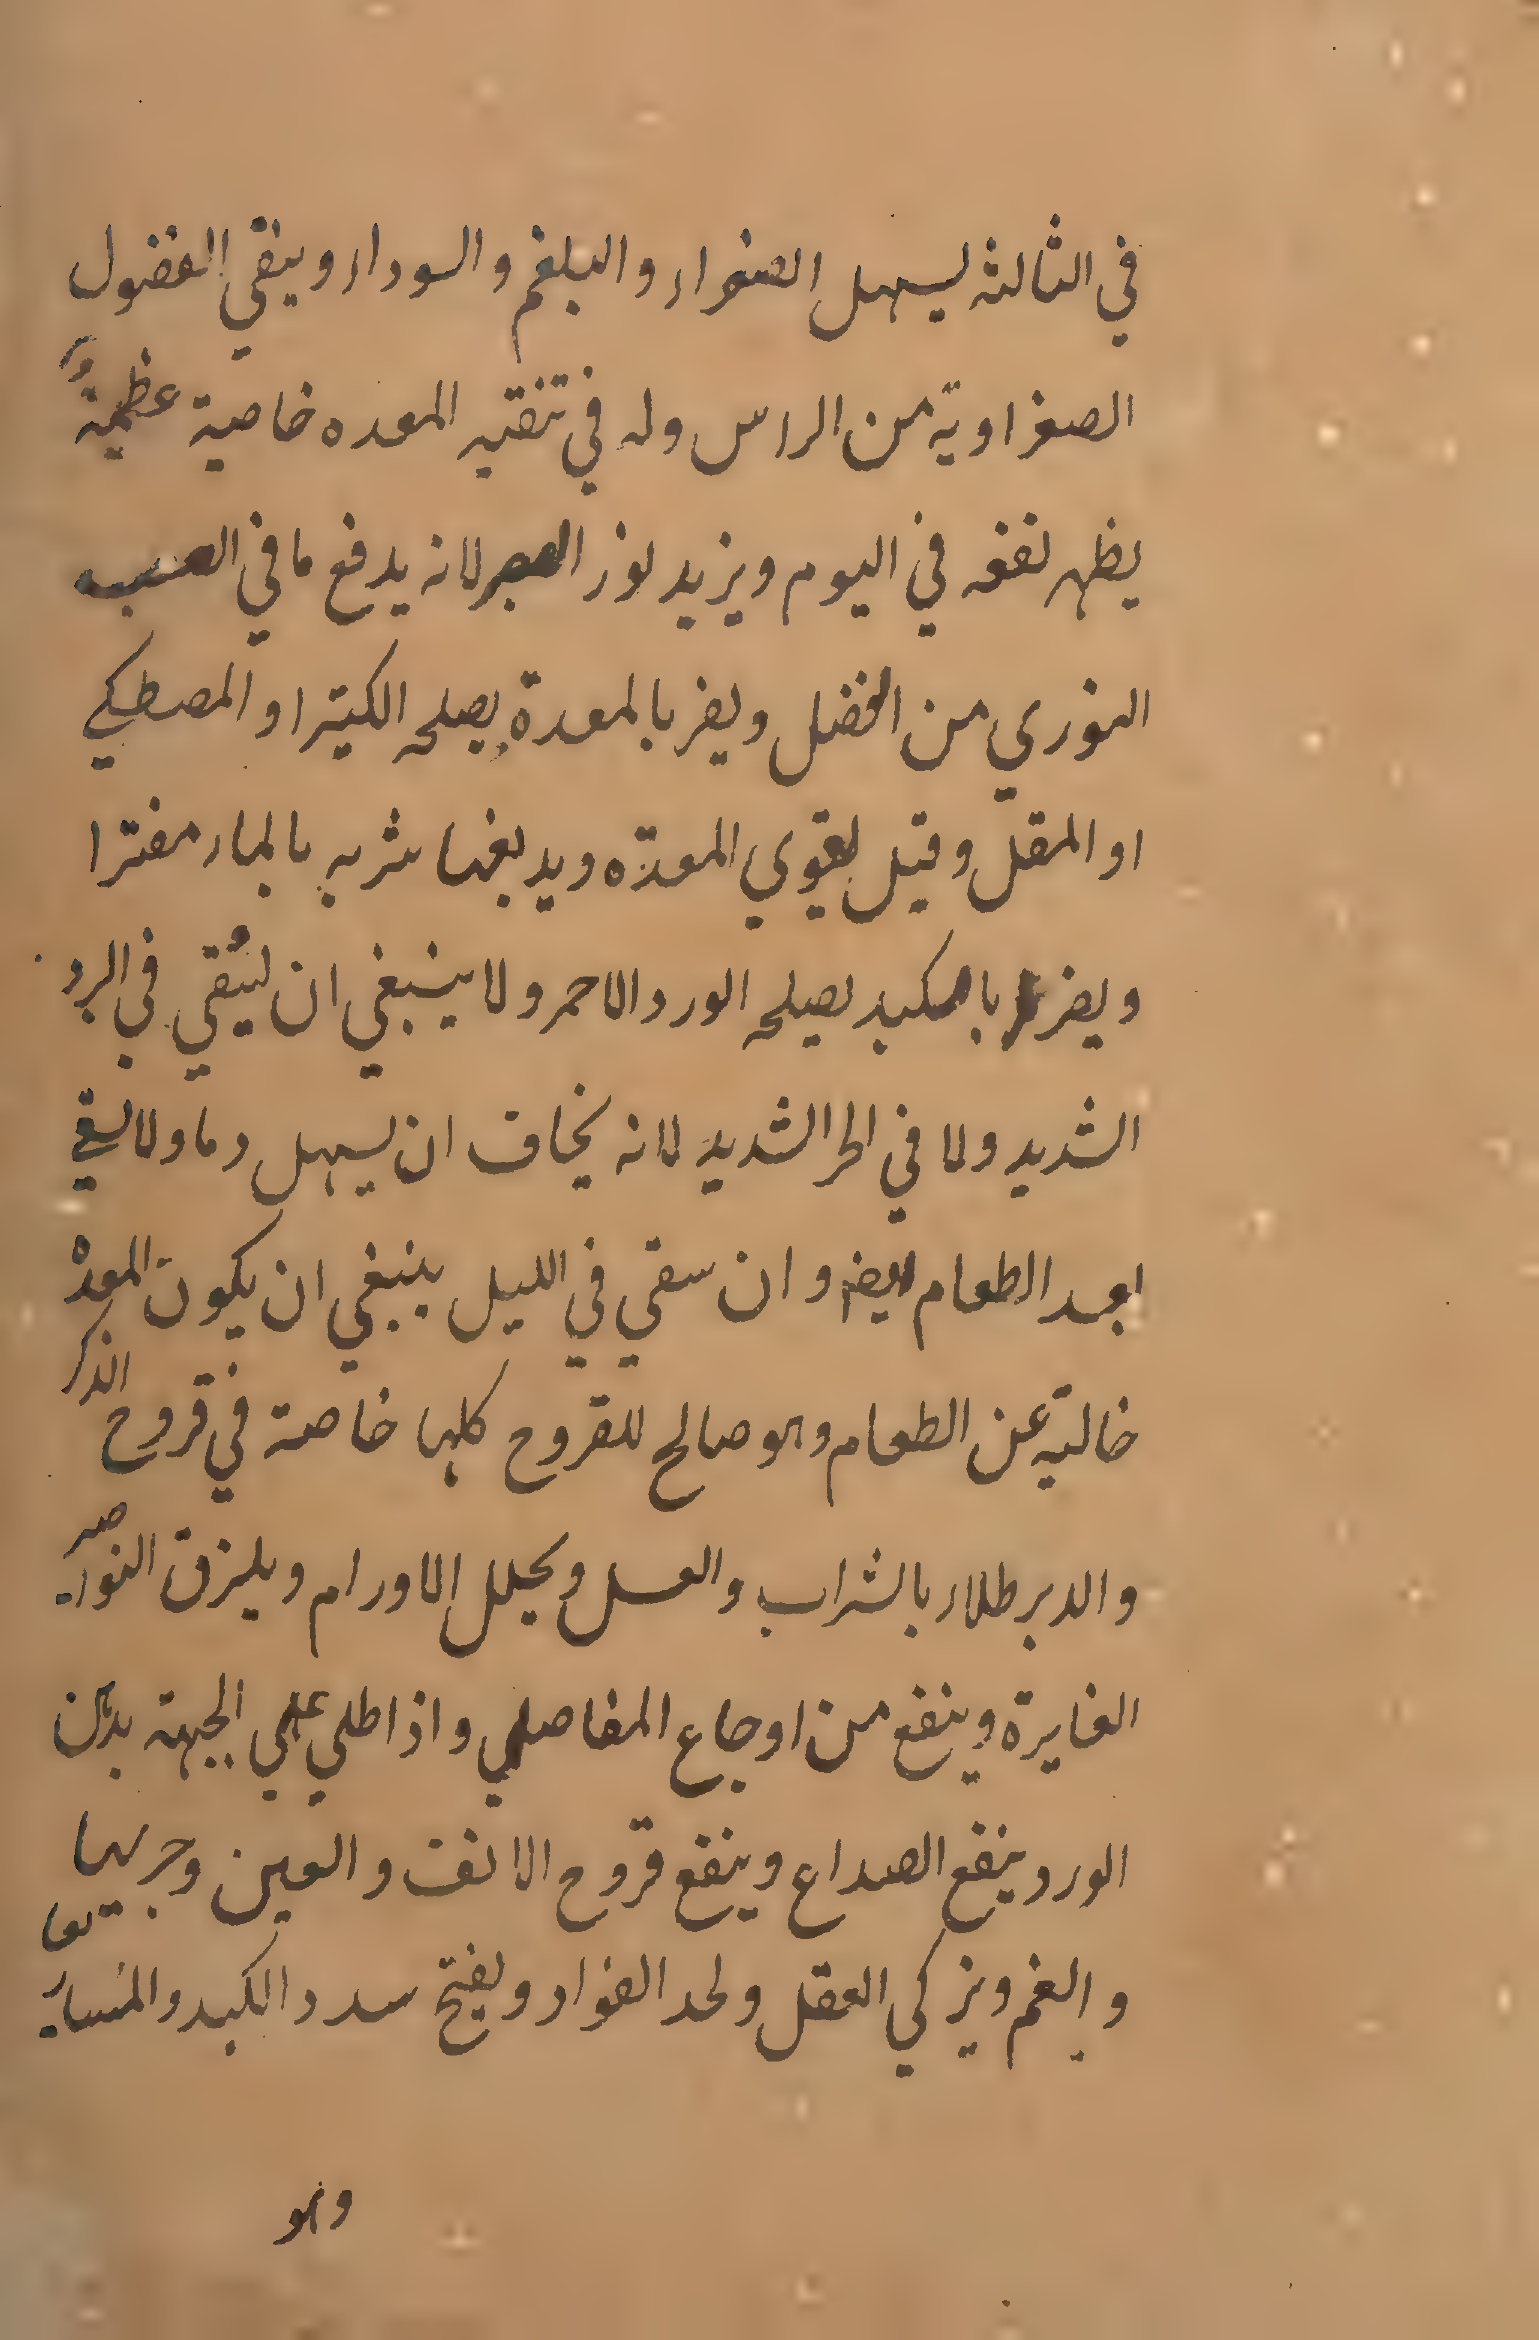 في الثالثه ليسهل الصفراء والبلغم والسوداء وينقي الفضول
الصفراوية من الراس وله في تنقيه المعده خاصية عظيمة و
يظهر نفعه في اليوم ويزيد نور البصر لانه يدفع ما في العصبه
النوري من الفضل ويضر بالمعدة يصلحه الكتيرا والمصطكي
او المقل وقيل يقوي المعدة ويدبغها شربه بالماء مفترا
ويضر بالكبد يصلحه الورد الاحمر ولا ينبغي ان يُسقي في البرد
الشديد ولا في الحر الشديد لانه يخاف ان يسهل دما ولا يسقي
بعد الطعام ايضا وان سقي في الليل ينبغي ان يكون المعدة
خاليه عن الطعام وهو صالح للقروح كلها خاصة في قروح الذكر
والدبر طلاء بالشراب والعسل ويحلل الاورام ويلزق النواصير
الغايرة وينفع من اوجاع المفاصل واذا طلي علي الجبهة بدهن
الورد ينفع الصداع وينفع قروح الانف والعين وجربها
والغم ويزكي العقل ويحد الفواد ويفتح سدد الكبد والماساريقا
وهو